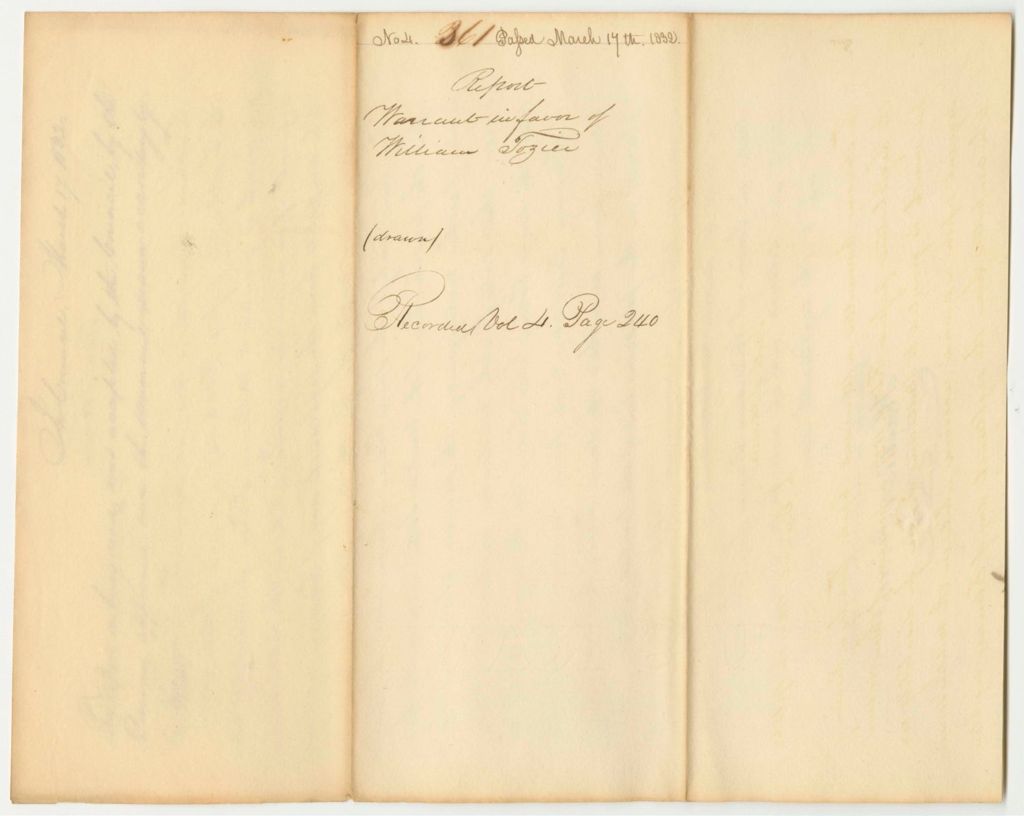 No 4. 361 Passed March 17th. 1832.
Report
Warrant in favor of
William Tozier
(drawn)
Recorded Vol 4. Page 240